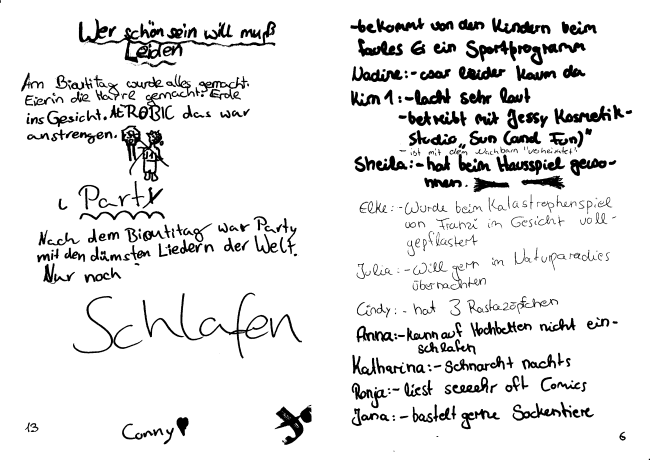 Wer schön sein will muß
Leiden
Am Bioutitag wurde alles gemacht.
Eierin die Harre gemacht. Erde
ins Gesicht. AEROBIC das war
anstrengen.
Party
Nach dem Bioutitag war Party
mit den dümsten Liedern der Welt.
Nur noch
Schlafen
13
Conny
-bekommt von den Kindern beim
faules Ei ein Sportprogramm
Nadine:-war leider kaum da
Kim 1:-lacht sehr laut
-betreibt mit Jessy Kosmetik-
Studio „Sun (and Fun)"
- ist mit dem Nachbarn "verheiratet"
Sheila:-hat beim Hausspiel gewo-
nnen.
Elke:-Wurde beim Kalastrophenspiel
von Franzi im Gesicht voll-
gepflastert
Julia:-Will gern im Naturparadies
übernachten
Cindy:- hat 3 Rastazöpfchen
Anna:-kann auf Hochbetten nicht ein-
schlafen
Katharina:-Schnarcht nachts
Ronja:-liest seeeehr oft Comics
Jana:-bastelt gerne Sockentiere
6